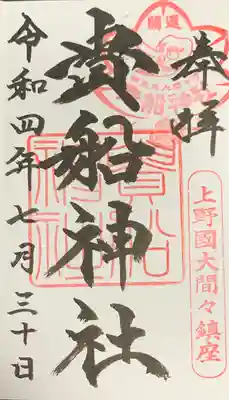 奉拝
開運
上野國大間々鎮座
貴船神社
貴船神社
令和四年七月三十日